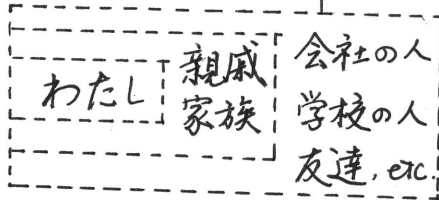 わたし
親戚
家族
会社の人
学校の人
友達, etc.